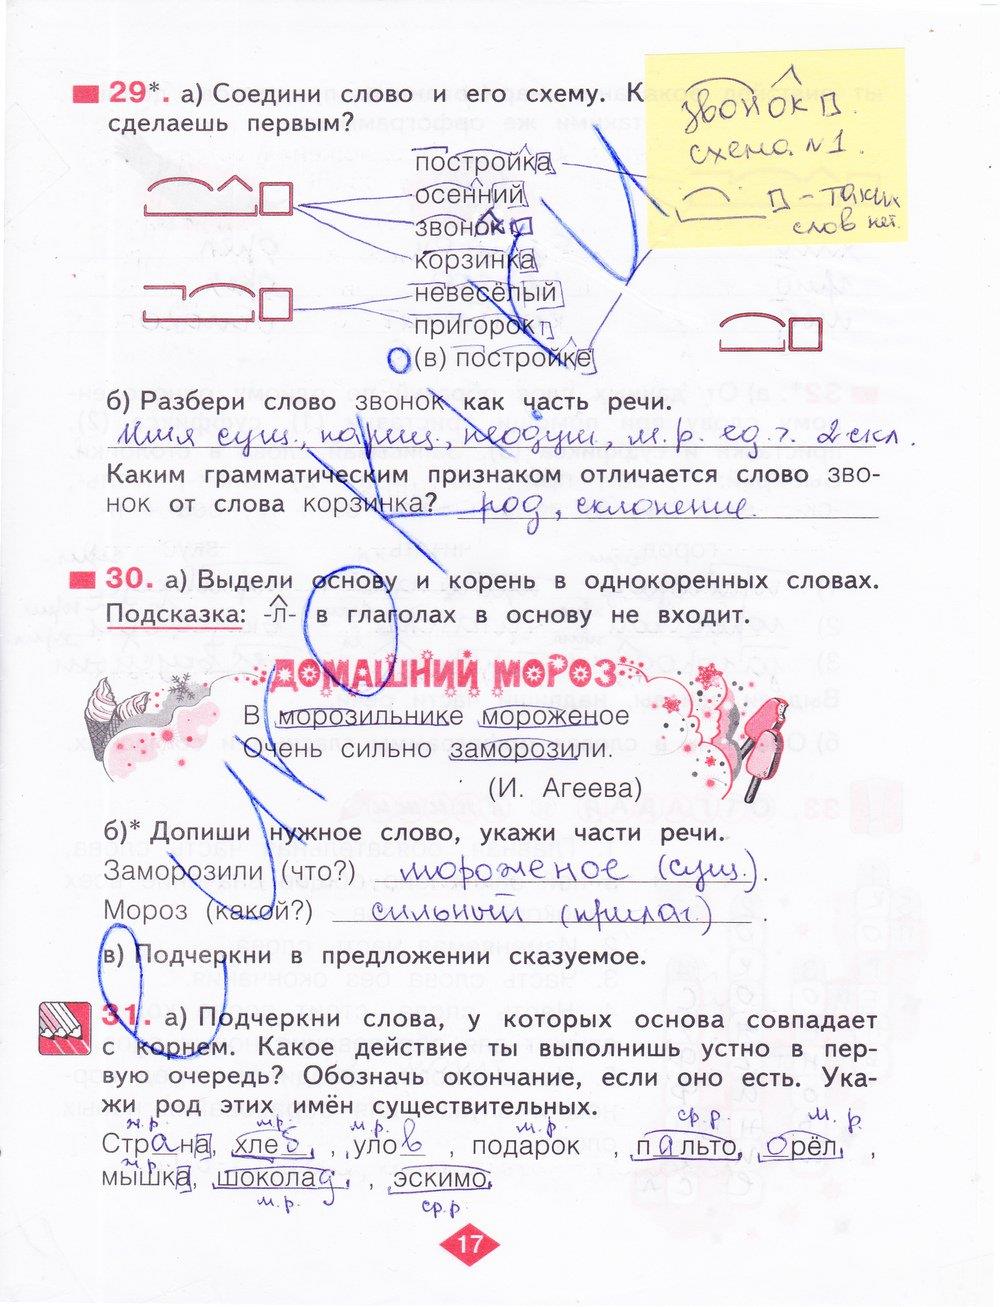 29*. а) Соедини слово и его схему. К
сделаешь первым?
звонок
схема №1.
- таких
слов нет.
постройка
осенний
звонок
корзинка
невесёлый
пригорок
(в) постройке
б) Разбери слово звонок как часть речи.
Имя сущ., нариц., неодуш., м.р. ед.ч. 2 скл.
Каким грамматическим признаком отличается слово зво-
нок от слова корзинка? род, склонение.
30. а) Выдели основу и корень в однокоренных словах.
Подсказка: -л- в глаголах в основу не входит.
ДОМАШНИЙ МОРОЗ
В морозильнике мороженое
Очень сильно заморозили.
(И. Агеева)
б)* Допиши нужное слово, укажи части речи.
Заморозили (что?) мороженое (сущ.).
Мороз (какой?) сильный (прилаг.).
в) Подчеркни в предложении сказуемое.
31. а) Подчеркни слова, у которых основа совпадает
с корнем. Какое действие ты выполнишь устно в пер-
вую очередь? Обозначь окончание, если оно есть. Ука-
жи род этих имён существительных.
ж.р. м.р. м.р. м.р. ср.р. м.р.
Страна, хлеб, улов, подарок, пальто, орёл,
ж.р.
мышка, шоколад, эскимо.
м.р. ср.р.
17